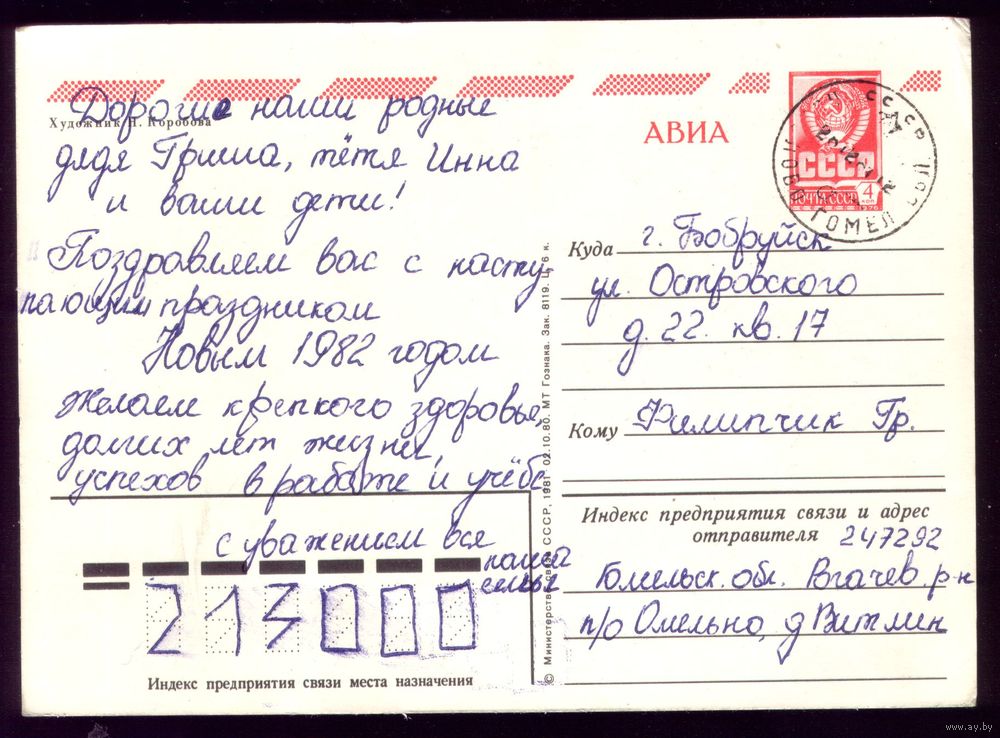 Художник Н. Коробова
Дорогие наши родные
дядя Гриша, тётя Инна
и ваши дети!
Поздравляем вас с насту
пающим праздником
Новым 1982 годом
Желаем крепкого здоровья,
долгих лет жизни,
успехов в работе и учёбе
с уважением вся
наша
семья
213000
Индекс предприятия связи места назначения
© Министерство связи СССР, 1981. 02.10.80. МТ Гознака. Зак. 8119. Ц. 6 к.
АВИА
СССР
ПОЧТА СССР
4
КОП
1976
СССР
ГОМЕЛ
Куда г. Бобруйск
ул. Островского
д. 22. кв. 17
Кому Филипчик Гр.
Индекс предприятия связи и адрес
отправителя 247292
Гомельск. обл. Ргачев. р-н
п/о Омельно, д Витлин
www.ay.by